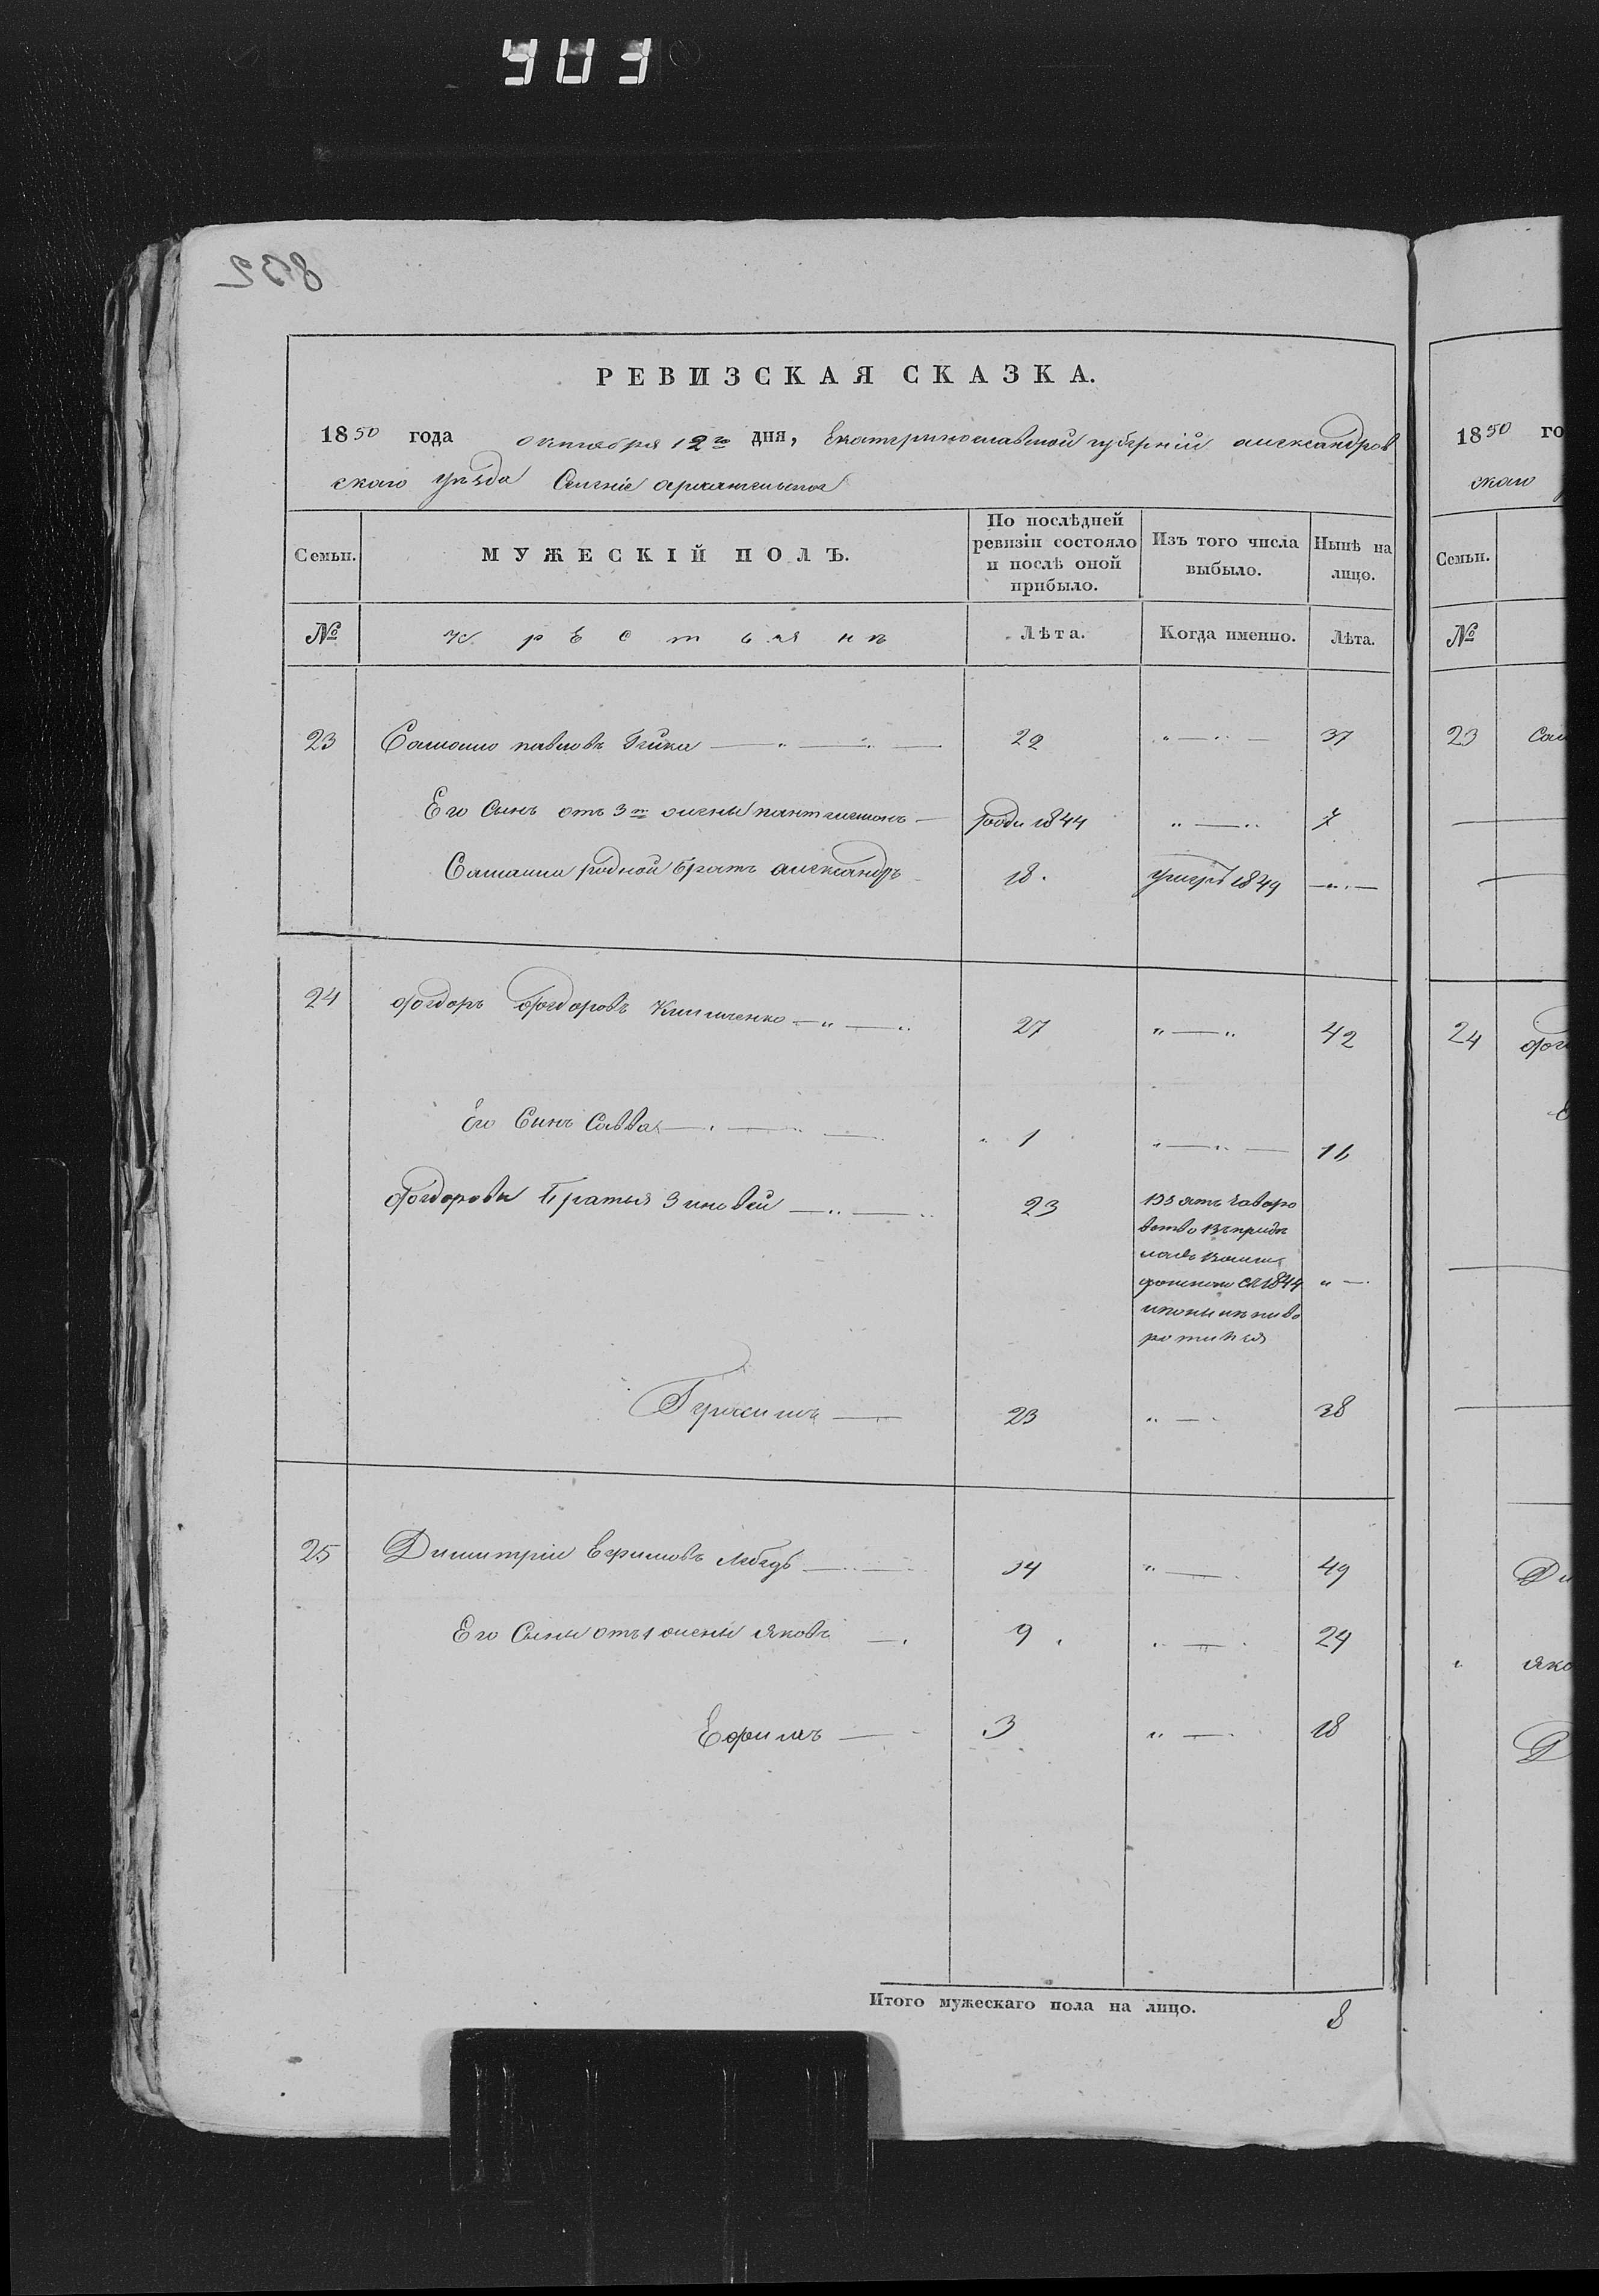 РЕВИЗСКАЯ СКАЗКА.
1850 года октября 12го дня, Екатеринославской губернiи александров
скаго уѣзда Селенiе архангельское
Семьи. МУЖЕСКІЙ ПОЛЪ. По послѣдней ревизіи состояло и послѣ оной прибыло. Изъ того числа выбыло. Нынѣ на лицо.
№ крестьянъ Лѣта. Когда именно. Лѣта.
23 павловъ 22 37
Его Сынъ отъ 3й жены пантелимонъ 1844 7
родной братъ александръ 18. умеръ 1849
24 федоръ федоровъ Клименко 27 42
Его Сынъ Савва 1 16
федоровы Братья Зиновей 23
1844
Гарасимъ 23 38
25 Димитрiи Ефимовъ Лебедь 34 49
Его Сыны отъ 1 жены яковъ 9 24
Ефимъ 3 18
Итого мужескаго пола на лицо. 8
1850 го
скаго
Семьи.
№
23 Сам
24
Ди
яко